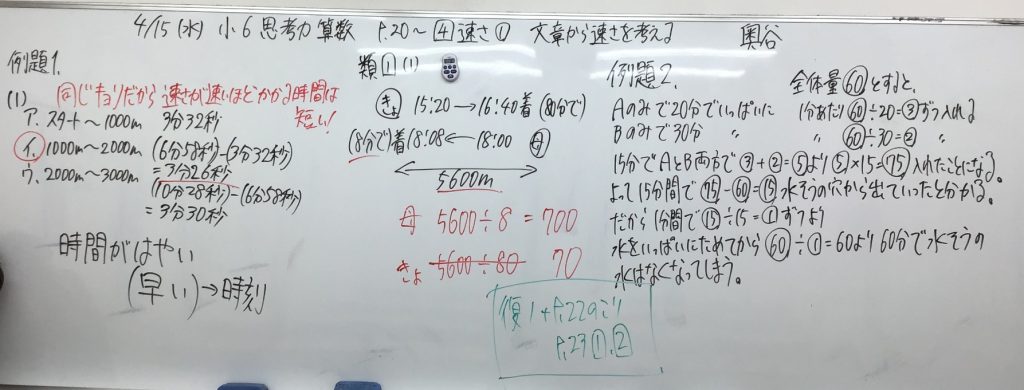 4/15(水) 小6思考力算数 P.20〜 4 速さ① 文章から速さを考える 奥谷
例題1.
(1) 同じキョリだから速さが速いほどかかる時間は
短い！
ア. スタート〜1000m 3分32秒
イ. 1000m〜2000m (6分58秒)-(3分32秒)
=3分26秒
ウ. 2000m〜3000m (10分28秒)-(6分58秒)
=3分30秒
時間がはやい
(早い)→時刻
類1(1)
きよ 15:20→16:40着(80分で)
(8分で)着18:08←18:00 母
5600m
母 5600÷8=700
きよ 5600÷80 70
復1+P.22のこり
P.23 1.2
例題2.
Aのみで20分でいっぱいに
Bのみで30分 〃
全体量60とすると、
1分あたり60÷20=③ずつ入れる
〃 60÷30=② 〃
15分でAとB両方で③+②=⑤より⑤×15=75入れたことになる。
よって15分間で75-60=⑮水そうの穴から出ていったと分かる。
だから1分間で⑮÷15=①ずつより
水をいっぱいにためてから60÷①=60より60分で水そうの
水はなくなってしまう。